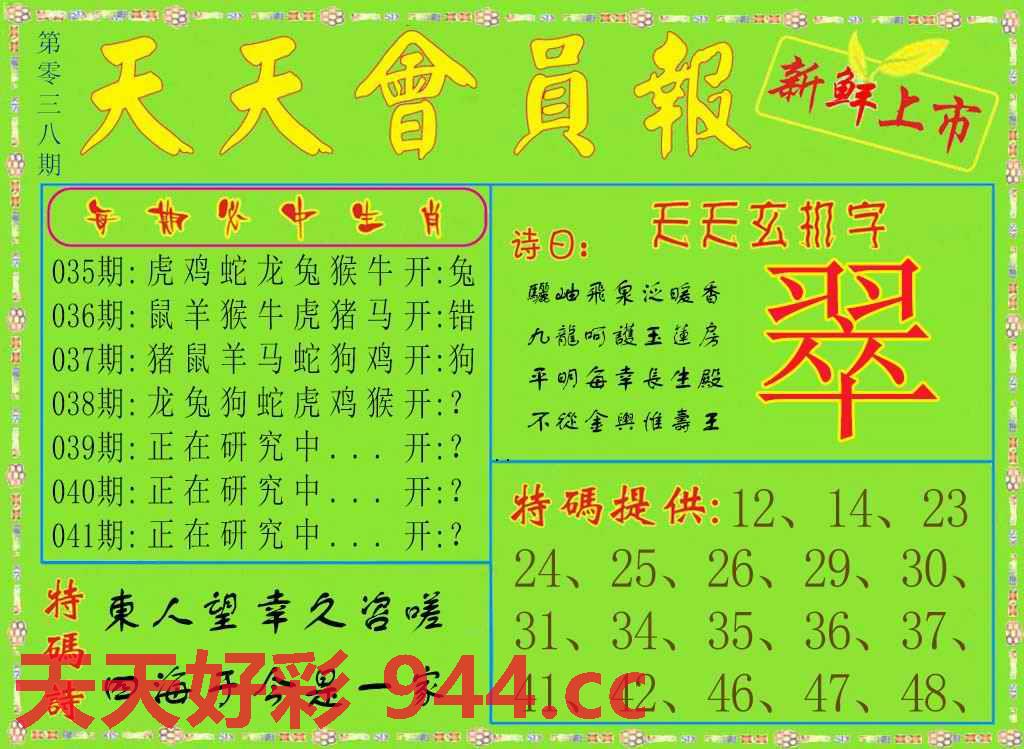 第零三八期
天天會員報
新鲜上市
每期必中生肖
035期:虎鸡蛇龙兔猴牛 开:兔
036期:鼠羊猴牛虎猪马 开:错
037期:猪鼠羊马蛇狗鸡 开:狗
038期:龙兔狗蛇虎鸡猴 开:?
039期:正在研究中... 开:?
040期:正在研究中... 开:?
041期:正在研究中... 开:?
天天玄机字
诗曰:
驪岫飛泉泛暖香
九龍呵護玉蓮房
平明每幸長生殿
不從金輿惟壽王
翠
特碼提供:12、14、23
24、25、26、29、30、
31、34、35、36、37、
41、42、46、47、48、
特碼詩
東人望幸久咨嗟
四海于今是一家
天天好彩 944.cc